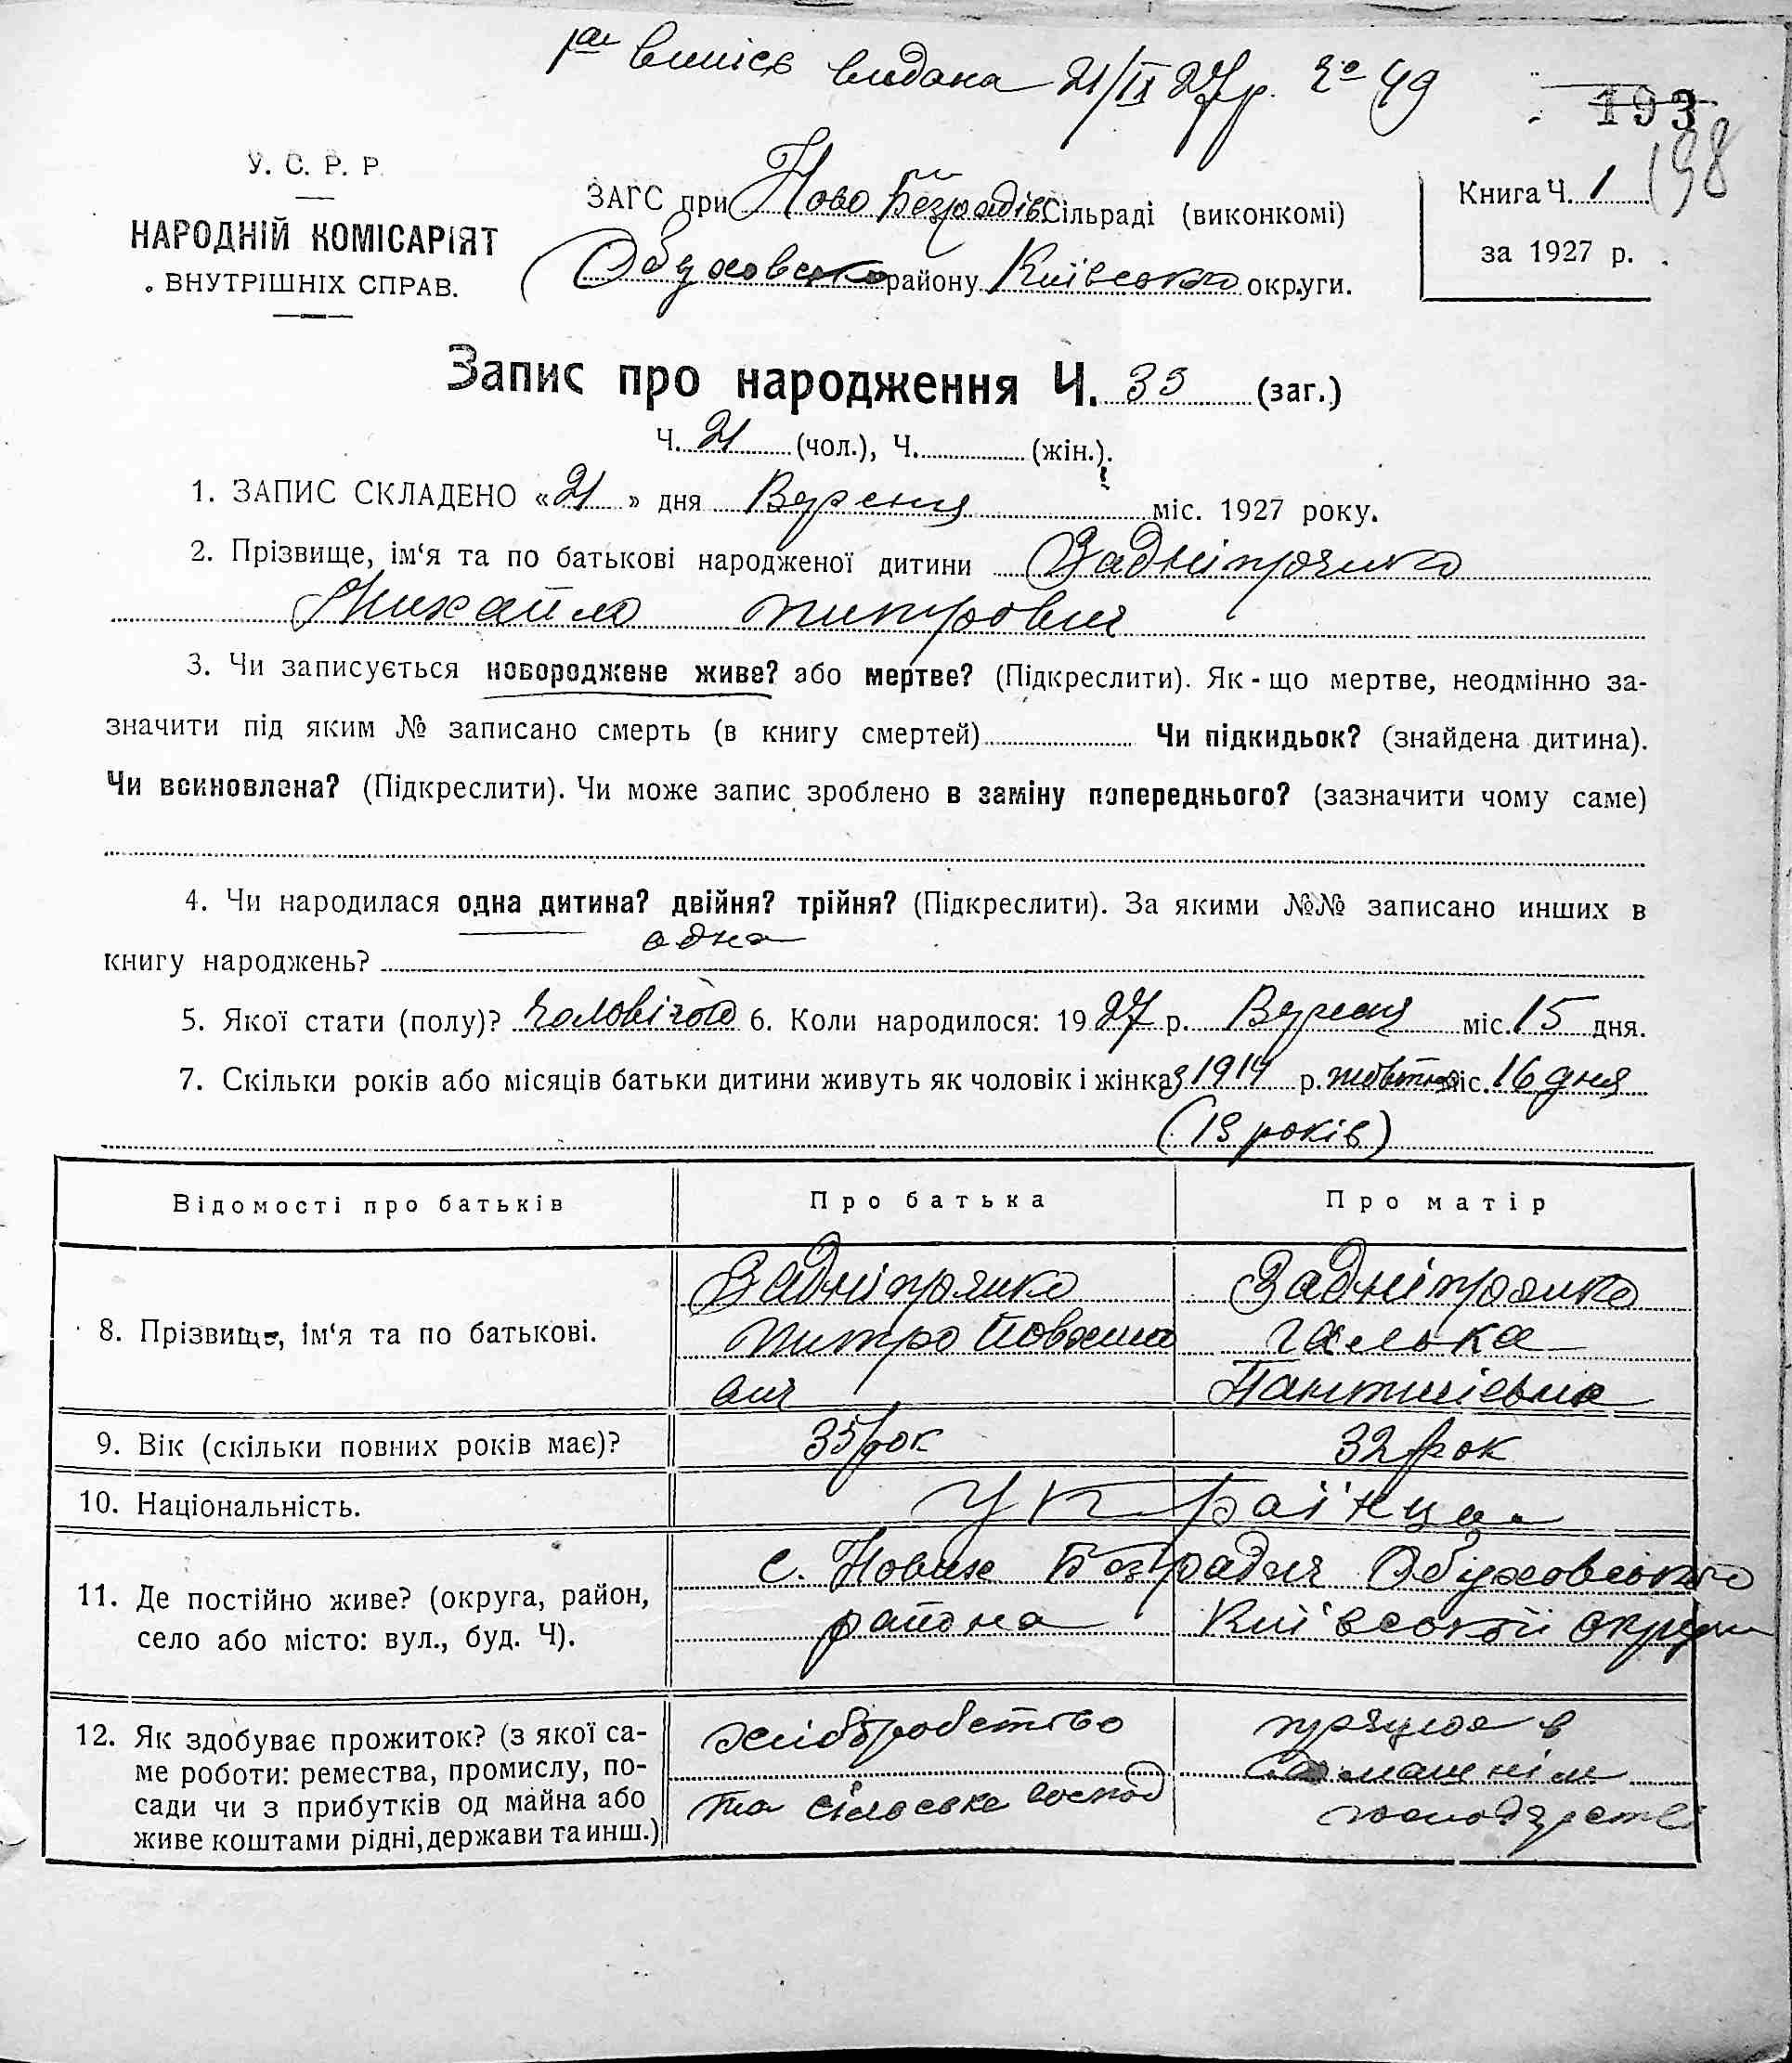 випись видана 21/IX 27 р. № 49
193
198
У. С. Р. Р.
НАРОДНІЙ КОМІСАРІЯТ
ВНУТРІШНІХ СПРАВ.
ЗАГС при Ново Безрадів Сільраді (виконкомі)
Обуховсько району Київсько округи.
Книга Ч. 1
за 1927 р.
Запис про народження Ч. 33 (заг.)
Ч. 21 (чол.), Ч. (жін.).
1. ЗАПИС СКЛАДЕНО «21» дня Вересня міс. 1927 року.
2. Прізвище, ім‘я та по батькові народженої дитини Задніпрянко
Михайло Митрович
3. Чи записується новороджене живе? або мертве? (Підкреслити). Як-що мертве, неодмінно за-
значити під яким № записано смерть (в книгу смертей) Чи підкидьок? (знайдена дитина).
Чи всиновлена? (Підкреслити). Чи може запис зроблено в заміну попереднього? (зазначити чому саме)
4. Чи народилася одна дитина? двійня? трійня? (Підкреслити). За якими №№ записано инших в
книгу народжень? одна
5. Якої стати (полу)? Чоловічого 6. Коли народилося: 1927 р. Вересня міс. 15 дня.
7. Скільки років або місяців батьки дитини живуть як чоловік і жінка з 1914 р. жовтня міс. 16 дня
(13 років)
Відомості про батьків Про батька Про матір
8. Прізвище, ім‘я та по батькові.
Задніпрянко Задніпрянко
Митро Явхим Галька
ович
9. Вік (скільки повних років має)? 35 рок 32 рок
10. Національність. Українца
11. Де постійно живе? (округа, район,
село або місто: вул., буд. Ч).
с. Нових Безрадич Обуховського
района Київської округи
12. Як здобуває прожиток? (з якої са-
ме роботи: ремества, промислу, по-
сади чи з прибутків од майна або
живе коштами рідні, держави та инш.)
хліборобство працює в
домашнім
та сільське господ господарстві